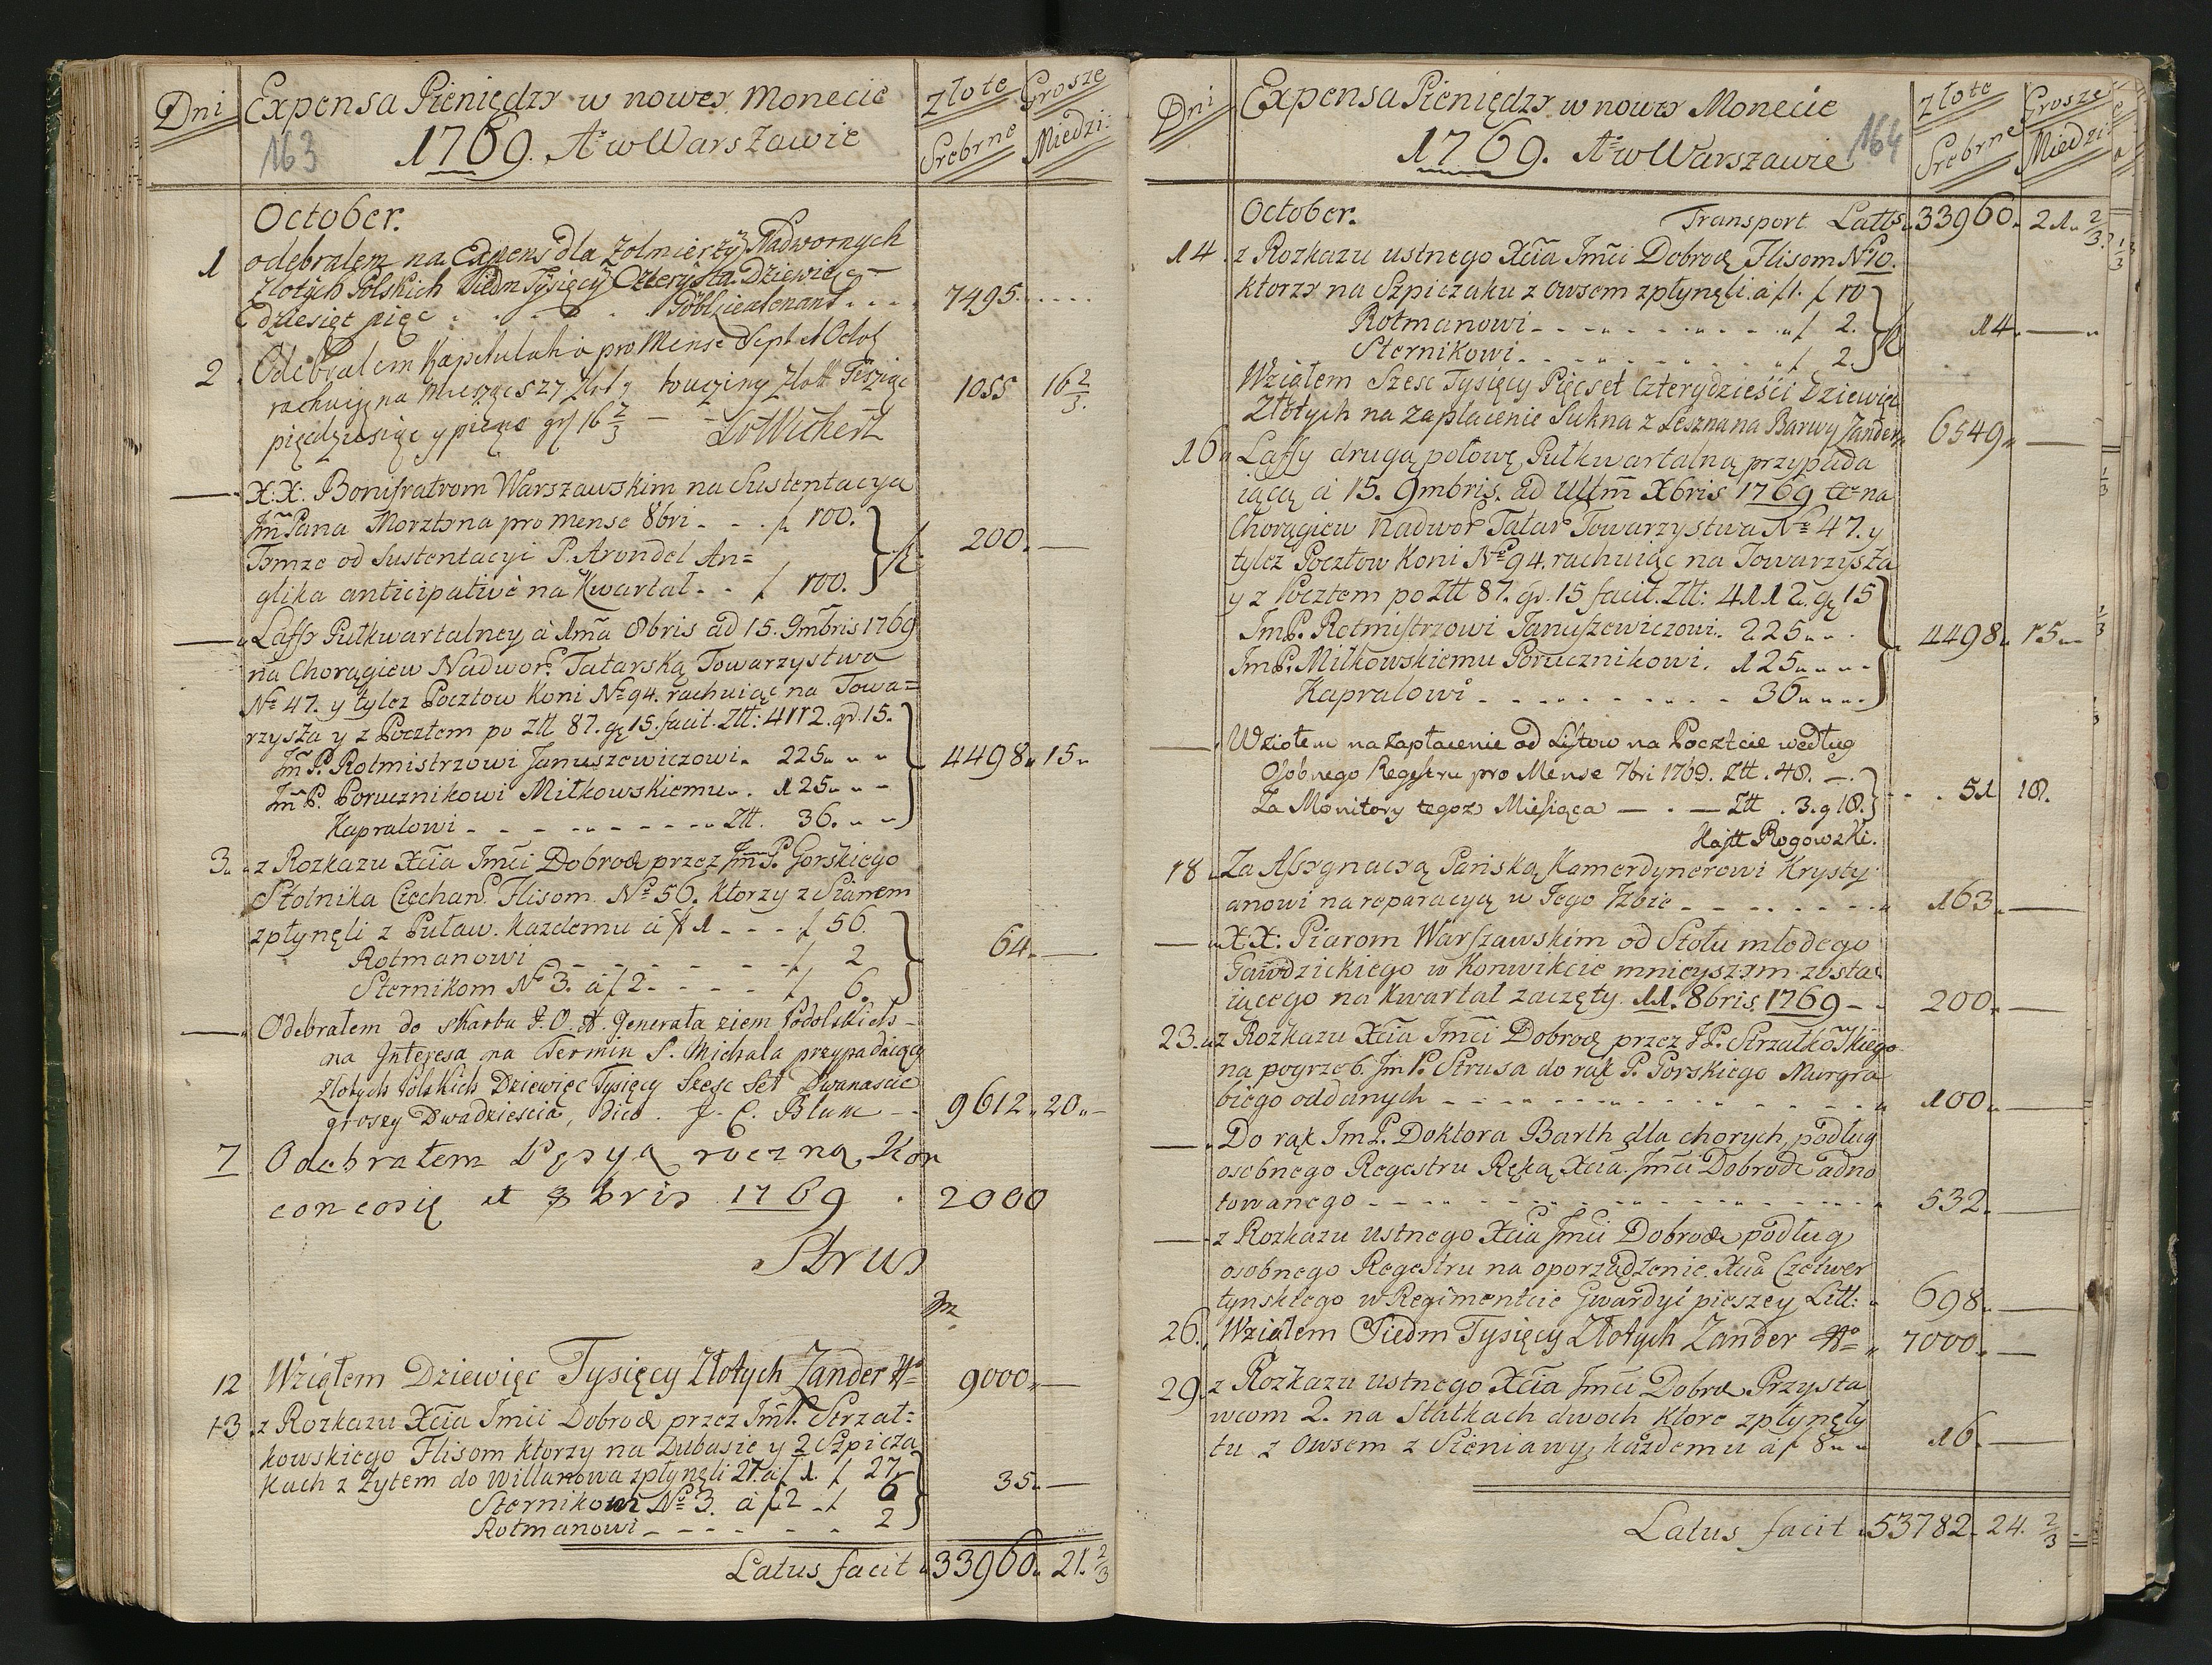 Dni Expensa Pieniędzy w nowey Monecie Złote Grosze
163 1769. Ao w Warszawie Srebrne Miedzi:
October.
1 odebrałem na Expens dla Zolnierzÿ Nadwornych
Złotych Polskich Siedm Tysięcÿ Czterysta Dziewięć
dziesiąt pięć . . . 7495. . . . .
2 Odebrałem Kapitulakie pro Mense Sept et Octob
rachuiąc na Miesząc 527 złotÿ uczÿni Złott Tysziąc 1055 16 2/3.
pięćdziesiąt y pięć gr 16 2/3 — LoWichert
— X.X. Bonifratrom Warszawskim na Sustentacyą
Jm̃ Pana Morztyna pro mense 8bri - - . f 100.
Tymze od Sustentacyi P. Arondel An= f 200. —
glika anticipativè na Kwartał - - f 100.
— Laffy Pułkwartalney à 1ma 8bris ad 15. 9mbris 1769
na Chorągiew Nadwor. Tatarską Towarzystwa
No 47. y tylez Pocztow Koni No 94. rachuiąc na Towa=
rzysza y z Pocztem po Ztt 87. gr 15. facit. Ztt: 4112. gr. 15.
Jm̃ P. Rotmistrzowi Januszewiczowi. 225 „ „ „ 4498 „ 15 „
Jm̃ P. Porucznikowi Miłkowskiemu „ . 125 „ „ -
Kapralowi - - - - - - - - - Ztt. 36. „ „
3. z Rozkazu Xcia Jmci Dobrod przez Jm̃ P. Gorskiego
Stolnika Ciechan. Flisom No 56. ktorzy z Sianem
zpłynęli z Puław. Kazdemu á f 1 - - - f 56.
Rotmanowi - - - - - - - f 2 64. —
Sternikom No 3. á f 2 - - - - f 6.
— Odebrałem do skarbu J. O. X. Generała ziem Podolskich -
na Interesa na Termin S. Michała przypadaiącą
złotych Polskich Dziewięć Tysięcy Sześć Set Dwanascie
groszy Dwadziescia, Dico. J. C. Blum - - 9612 „ 20 „ -
7 Odebrałem Pęsyą roczną Kon
concosię et 8bris 1769 . 2000
Strus
12 Wziąłem Dziewięć Tysięcy Złotych Zander 9000 „ —
13 z Rozkazu Xcia Jmci Dobrod przez Jm̃ P. Strzał=
kowskiego Flisom ktorzy na Dubasie y 2 Szpicza
kach z Żytem do Willanowa zpłynęli 27. á f 1. f 27.
Sternikom No 3. á f 2 - f 6 35. —
Rotmanowi - - - - - - 2
Latus facit „ 33960 „ 21. 2/3
Dni Expensa Pieniędzy w nowey Monecie Złote Grosze
1769. Ao w Warszawie 164 Srebrne Miedzi:
October. Transport Latts „ 33960 „ 21. 2/3
14 z Rozkazu ustnego Xcia Jmci Dobrod Flisom No 10.
ktorzy na Szpiczaku z Owsem zpłynęli. á f 1. f 10
Rotmanowi - - - - - - - - „ f 2. f 14 „ — „
Sternikowi - - - - - - - „ f 2.
Wziąłem Szesc Tysięcy Pięcset Czterydzieści Dziewięć
Złotych na zapłacenie Sukna z Leszna na Barwy Zander „ 6549 „ —
16 „ Laffy drugą połowę Pułkwartalną przypada
iącą à 15. 9mbris. ad Ultm̃ Xbris 1769 na
Chorągiew Nadwor Tatar Towarzystwa No 47. y
tylez Pocztow Koni No 94. rachuiąc na Towarzysza
y z Pocztem po Ztt 87. gr. 15 facit. Ztt: 4112. gr 15
Jm P. Rotmistrzowi Januszewiczowi. 225 „ „ . 4498 „ 15 „
Jm P. Miłkowskiemu Porucznikowi. 125 „ „ „
Kapralowi - - - - - - - - 36 „ „ „
— Wziołem na zapłacenie od Listow na Poczcie według
Osobnego Regestru pro Mense 7bri 1769. Ztt. 48. —.
Za Monitory tegoz Miesiąca — . — Ztt . 3. g 18. - - . 51 18.
Kajtt Rogowski.
18 „ Za Assygnacyą Pańską Kamerdynerowi Krysty
anowi na reparacyą w Jego Izbie - - - - - - - 163 „ —
— „ X.X: Piarom Warszawskim od Stołu młodego
Gawdzickiego w Konwikcie mnieyszym zosta
iącego na Kwartał zaczęty. 11. 8bris. 1769 - - 200 „ —
23. „ z Rozkazu Xcia Jmci Dobrod przez JP. Strzałkoskiego
na pogrzeb Jm P. Strusa do rąk P. Gorskiego Murgra
biego oddanych - - - - - - - - - - „ 100 „ —
— „ Do rąk Jm P. Doktora Barth dla chorych, podług
osobnego Regestru Ręką Xcia Jmci Dobrod adno
towanego - - - - - - - - - - - 532. —
— „ z Rozkazu ustnego Xcia Jmci Dobrod podług
osobnego Regestru na oporządzenie Xcia Czetwer
tynskiego w Regimentcie Gwardyi pieszey Litt: „ 698 „ —
26. Wziąłem Siedm Tysięcy Złotych Zander „ 7000 „ —
29. z Rozkazu ustnego Xcia Jmci Dobrod Przysta
wcom 2. na Statkach dwoch ktore zpłynęły
tu z Owsem z Sieniawy, każdemu á f 8 „ „ 16. —
Latus facit „ 53782 „ 24. 2/3